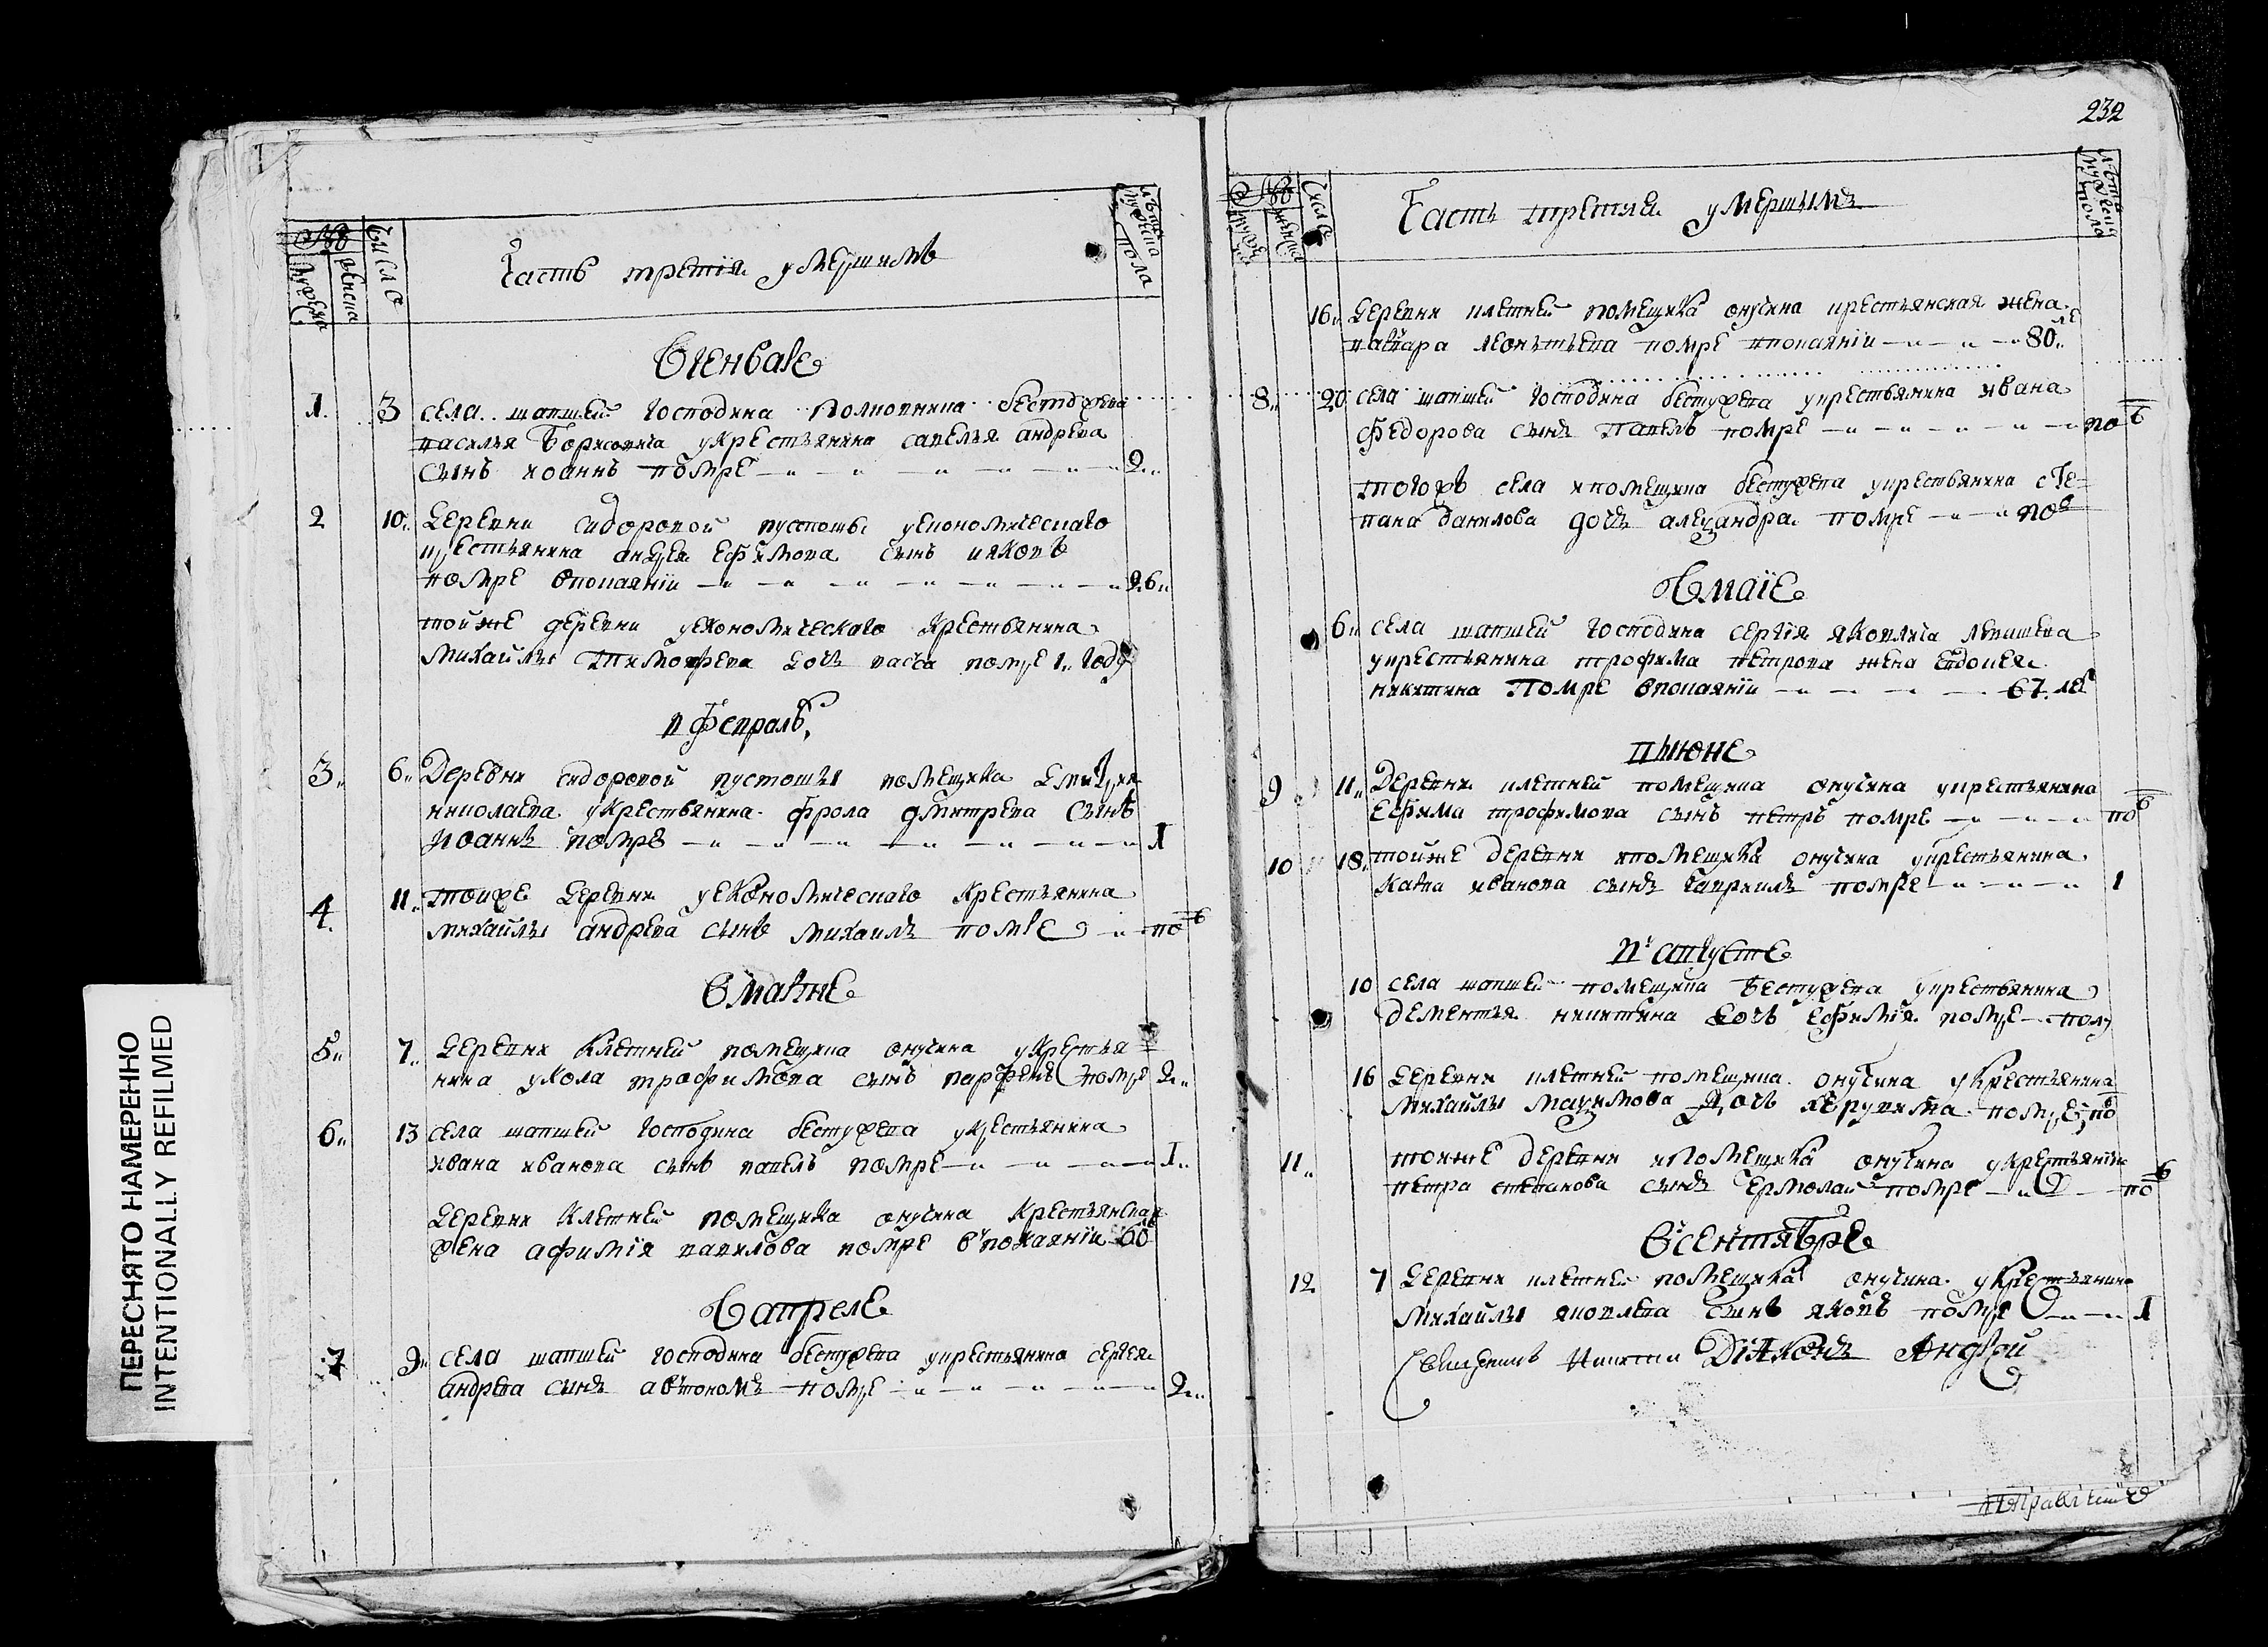 ПЕРЕСНЯТО НАМЕРЕННО
INTENTIONALLY REFILMED
№№
мужеска
женска
Числа
Часть третія умершимъ
лѣта
мужеска
пола
Вгенваре
1. 3 села шапшеи господина полковника бестужева
василья борисовича укрестьянина савелья андреева
сынъ иоаннъ помре 2
2 10 Деревни сидоровой пустошы уекономическаго
крестьянина андрея ефимова сынъ иаковъ
помре впокаяніи 26
тойже деревни уекономическаго крестьянина
михайлы тимофеева дочь васса помре 1 году
в Феврале
3 6 Деревни сидоровой пустошы помещика
николаева укрестьянина фрола дмитрева сынъ
иоаннъ помре 1
4. 11 тоиже деревни уекономическаго крестьянина
михайлы андрева сынъ михаилъ помре по
Вмарте
5 7 Деревни клетней помещика онучина укрестья=
нина трофимова сынъ парфенъ помре 2
6 13 села шапшеи господина бестужева укрестьянина
ивана иванова сынъ павелъ помре 1
Деревни клетней помещика онучина крестьянская
жена афимія помре впокаяніи 60
Вапреле
7 9 села шапшеи господина бестужева укрестьянина сергея
андрева сынъ автономъ помре 2
232
№№
мужеска
женска
Числа
Часть третія умершымъ
лѣта
мужеска
пола
16 Деревни клетней помещика онучина крестьянская жена
варвара леонтьева помре впокаяніи 80 ле
8 20 села шапшеи господина бестужева укрестьянина ивана
федорова сынъ павелъ помре по
тогожъ села ипомещика бестужева укрестьянина сте=
пана данилова дочь алеѯандра помре по
Вмаіе
6 села шапшеи господина сергія яковлича
укрестьянина трофима петрова жена евдокея
никитина помре впокаяніи 67 ле
виюне
9 11 Деревни клетней помещика онучина укрестьянина
ефима трофимова сынъ петръ помре по
10 18 тойже деревни ипомещика онучина укрестьянина
карпа иванова сынъ гавриилъ помре 1
в августе
10 села шапшеи помещика бестужева укрестьянина
дементья никитина дочь ефимія помре полу
16 Деревни клетней помещика онучина укрестьянина
михайлы маѯимова дочь херувима помре по
11 тоиже деревни ипомещика онучина укрестьянина
петра степанова сынъ ермолай помре по
Всентябре
12 7 Деревни клетней помещика онучина укрестьянина
михайлы яковлева сынъ яковъ помре 1
Священникъ Никита Діаконъ Андрей